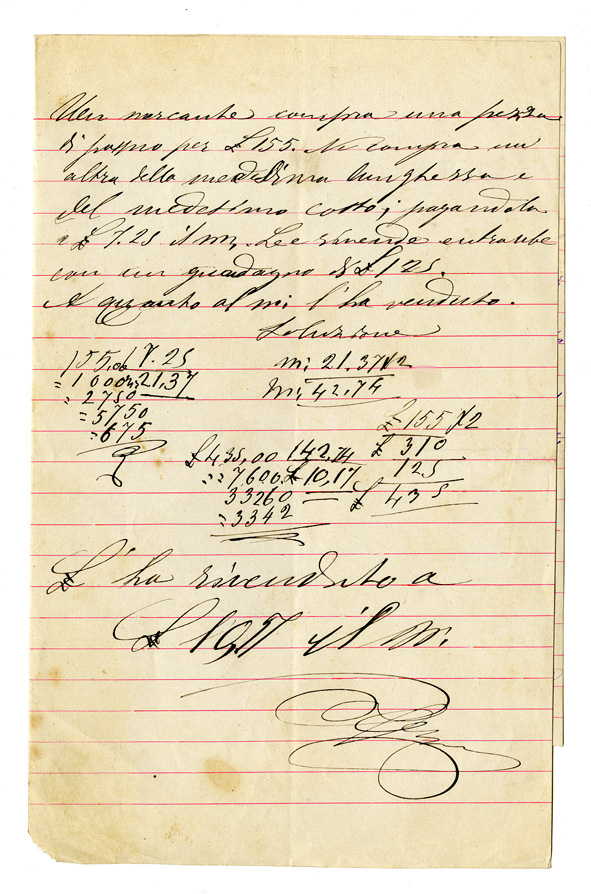 Un mercante compra una pezza
di panno per £ 155. Ne compra un
altra della medesima lunghessa e
del medesimo costo; pagandola
a £ 7.25 il m. Le rivende entrambe
con un guadagno di £ 125.
A quanto al m: l'ha venduto.
Soluzione
155,00 | 7.25
= 1000 m: 21,37
= 2750
= 5750
= 675
m: 21.37 x 2
m: 42.74
£ 155 x 2
£ 310
125
£ 435
£ 435,00 | 42.74
== 7600 £ 10,17
33260
= 3342
L'ha rivenduto a
£ 10,17 il m.